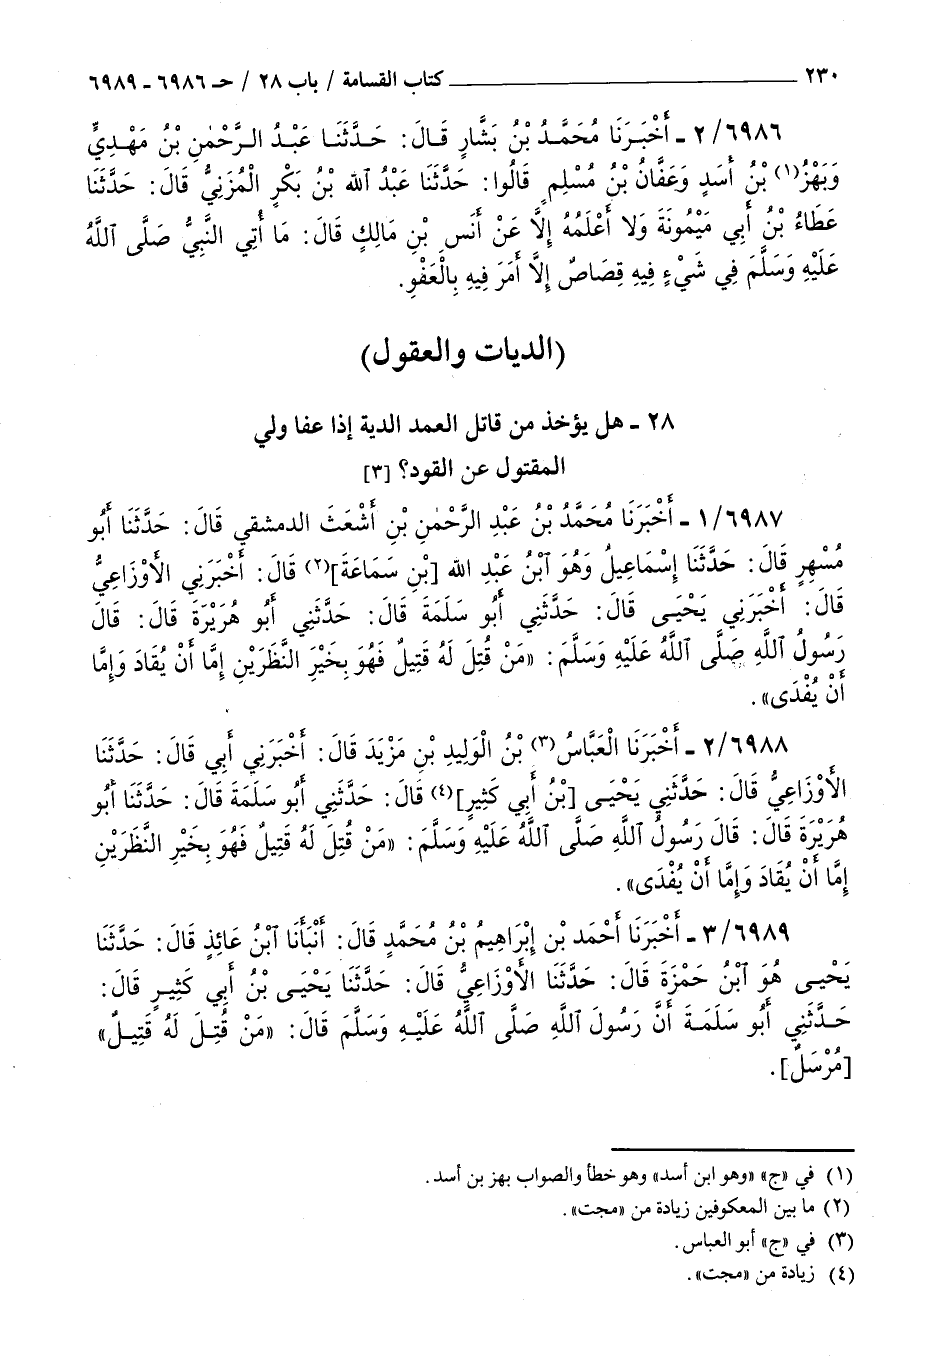 ٢٣٠ ــــــــــــــــ كتاب القسامة / باب ٢٨ / حـ ٦٩٨٦ ـ ٦٩٨٩
٢/٦٩٨٦ ـ أَخْبَرَنَا مُحَمَّدُ بْنُ بَشَّارٍ قَالَ: حَدَّثَنَا عَبْدُ الرَّحْمٰنِ بْنُ مَهْدِيٍّ
وَبَهْزُ(١) بْنُ أَسَدٍ وَعَفَّانُ بْنُ مُسْلِمٍ قَالُوا: حَدَّثَنَا عَبْدُ الله بْنُ بَكْرٍ الْمُزَنِيُّ قَالَ: حَدَّثَنَا
عَطَاءُ بْنُ أَبِي مَيْمُونَةَ وَلا أَعْلَمُهُ إِلَّا عَنْ أَنَسِ بْنِ مَالِكٍ قَالَ: مَا أُتِي النَّبِيُّ صَلَّى ٱللَّهُ
عَلَيْهِ وَسَلَّمَ فِي شَيْءٍ فِيهِ قِصَاصٌ إِلَّا أَمَرَ فِيهِ بِالْعَفْوِ.
(الديات والعقول)
٢٨ ـ هل يؤخذ من قاتل العمد الدية إذا عفا ولي
المقتول عن القود؟ [٣]
١/٦٩٨٧ ـ أَخْبَرَنَا مُحَمَّدُ بْنُ عَبْدِ الرَّحْمٰنِ بْنِ أَشْعَثَ الدمشقي قَالَ: حَدَّثَنَا أَبُو
مُسْهِرٍ قَالَ: حَدَّثَنَا إِسْمَاعِيلُ وَهُوَ ٱبْنُ عَبْدِ الله [بْنِ سَمَاعَةَ](٢) قَالَ: أَخْبَرَنِي الأَوْزَاعِيُّ
قَالَ: أَخْبَرَنِي يَحْيَى قَالَ: حَدَّثَنِي أَبُو سَلَمَةَ قَالَ: حَدَّثَنِي أَبُو هُرَيْرَةَ قَالَ: قَالَ
رَسُولُ ٱللَّهِ صَلَّى ٱللَّهُ عَلَيْهِ وَسَلَّمَ: «مَنْ قُتِلَ لَهُ قَتِيلٌ فَهُوَ بِخَيْرِ النَّظَرَيْنِ إِمَّا أَنْ يُقَادَ وَإِمَّا
أَنْ يُفْدَى».
٢/٦٩٨٨ ـ أَخْبَرَنَا الْعَبَّاسُ(٣) بْنُ الْوَلِيدِ بْنِ مَزْيَدَ قَالَ: أَخْبَرَنِي أَبِي قَالَ: حَدَّثَنَا
الأَوْزَاعِيُّ قَالَ: حَدَّثَنِي يَحْيَى [بْنُ أَبِي كَثِيرٍ](٤) قَالَ: حَدَّثَنِي أَبُو سَلَمَةَ قَالَ: حَدَّثَنَا أَبُو
هُرَيْرَةَ قَالَ: قَالَ رَسُولُ ٱللَّهِ صَلَّى ٱللَّهُ عَلَيْهِ وَسَلَّمَ: «مَنْ قُتِلَ لَهُ قَتِيلٌ فَهُوَ بِخَيْرِ النَّظَرَيْنِ
إِمَّا أَنْ يُقَادَ وَإِمَّا أَنْ يُفْدَى».
٣/٦٩٨٩ ـ أَخْبَرَنَا أَحْمَد بْن إِبْرَاهِيمُ بْنُ مُحَمَّدٍ قَالَ: أَنْبَأَنَا ٱبْنُ عَائِذٍ قَالَ: حَدَّثَنَا
يَحْيى هُوَ ٱبْنُ حَمْزَةَ قَالَ: حَدَّثَنَا الأَوْزَاعِيُّ قَالَ: حَدَّثَنَا يَحْيَى بْنُ أَبِي كَثِيرٍ قَالَ:
حَدَّثَنِي أَبُو سَلَمَةَ أَنَّ رَسُولَ ٱللَّهِ صَلَّى ٱللَّهُ عَلَيْهِ وَسَلَّمَ قَالَ: «مَنْ قُتِلَ لَهُ قَتِيلٌ»
[مُرْسَلٌ].
(١) في «ج» «وهو ابن أسد» وهو خطأ والصواب بهز بن أسد.
(٢) ما بين المعكوفين زيادة من «مجت».
(٣) في «ج» أبو العباس.
(٤) زيادة من «مجت».